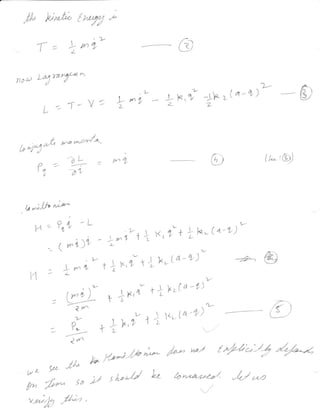 the kinetic Energy is
T = 1/2 m q̇² —— ②
now Lagrangian
L = T - V = 1/2 m q̇² - 1/2 k₁ q² - 1/2 k₂ (a-q)² —— ③
Conjugate momenta
P_q = ∂L/∂q̇ = m q̇ —— ④
Hamiltonian
H = P_q q̇ - L
= (m q̇) q̇ - 1/2 m q̇² + 1/2 k₁ q² + 1/2 k₂ (a-q)²
H = 1/2 m q̇² + 1/2 k₁ q² + 1/2 k₂ (a-q)²
= (m q̇)²/2m + 1/2 k₁ q² + 1/2 k₂ (a-q)²
= P_q²/2m + 1/2 k₁ q² + 1/2 k₂ (a-q)² —— ⑤
we see the Hamiltonian does not explicitly depends
on time so it should be conserved. let us
verify this.